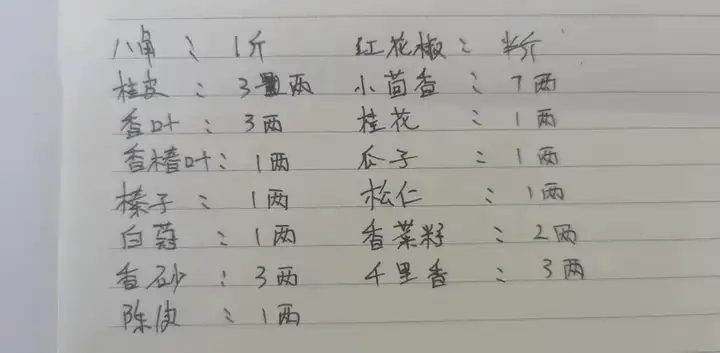 八角：1斤 红花椒：半斤
桂皮：3两 小茴香：7两
香叶：3两 桂花：1两
香楂叶：1两 瓜子：1两
榛子：1两 松仁：1两
白蔻：1两 香菜籽：2两
香砂：3两 千里香：3两
陈皮：1两